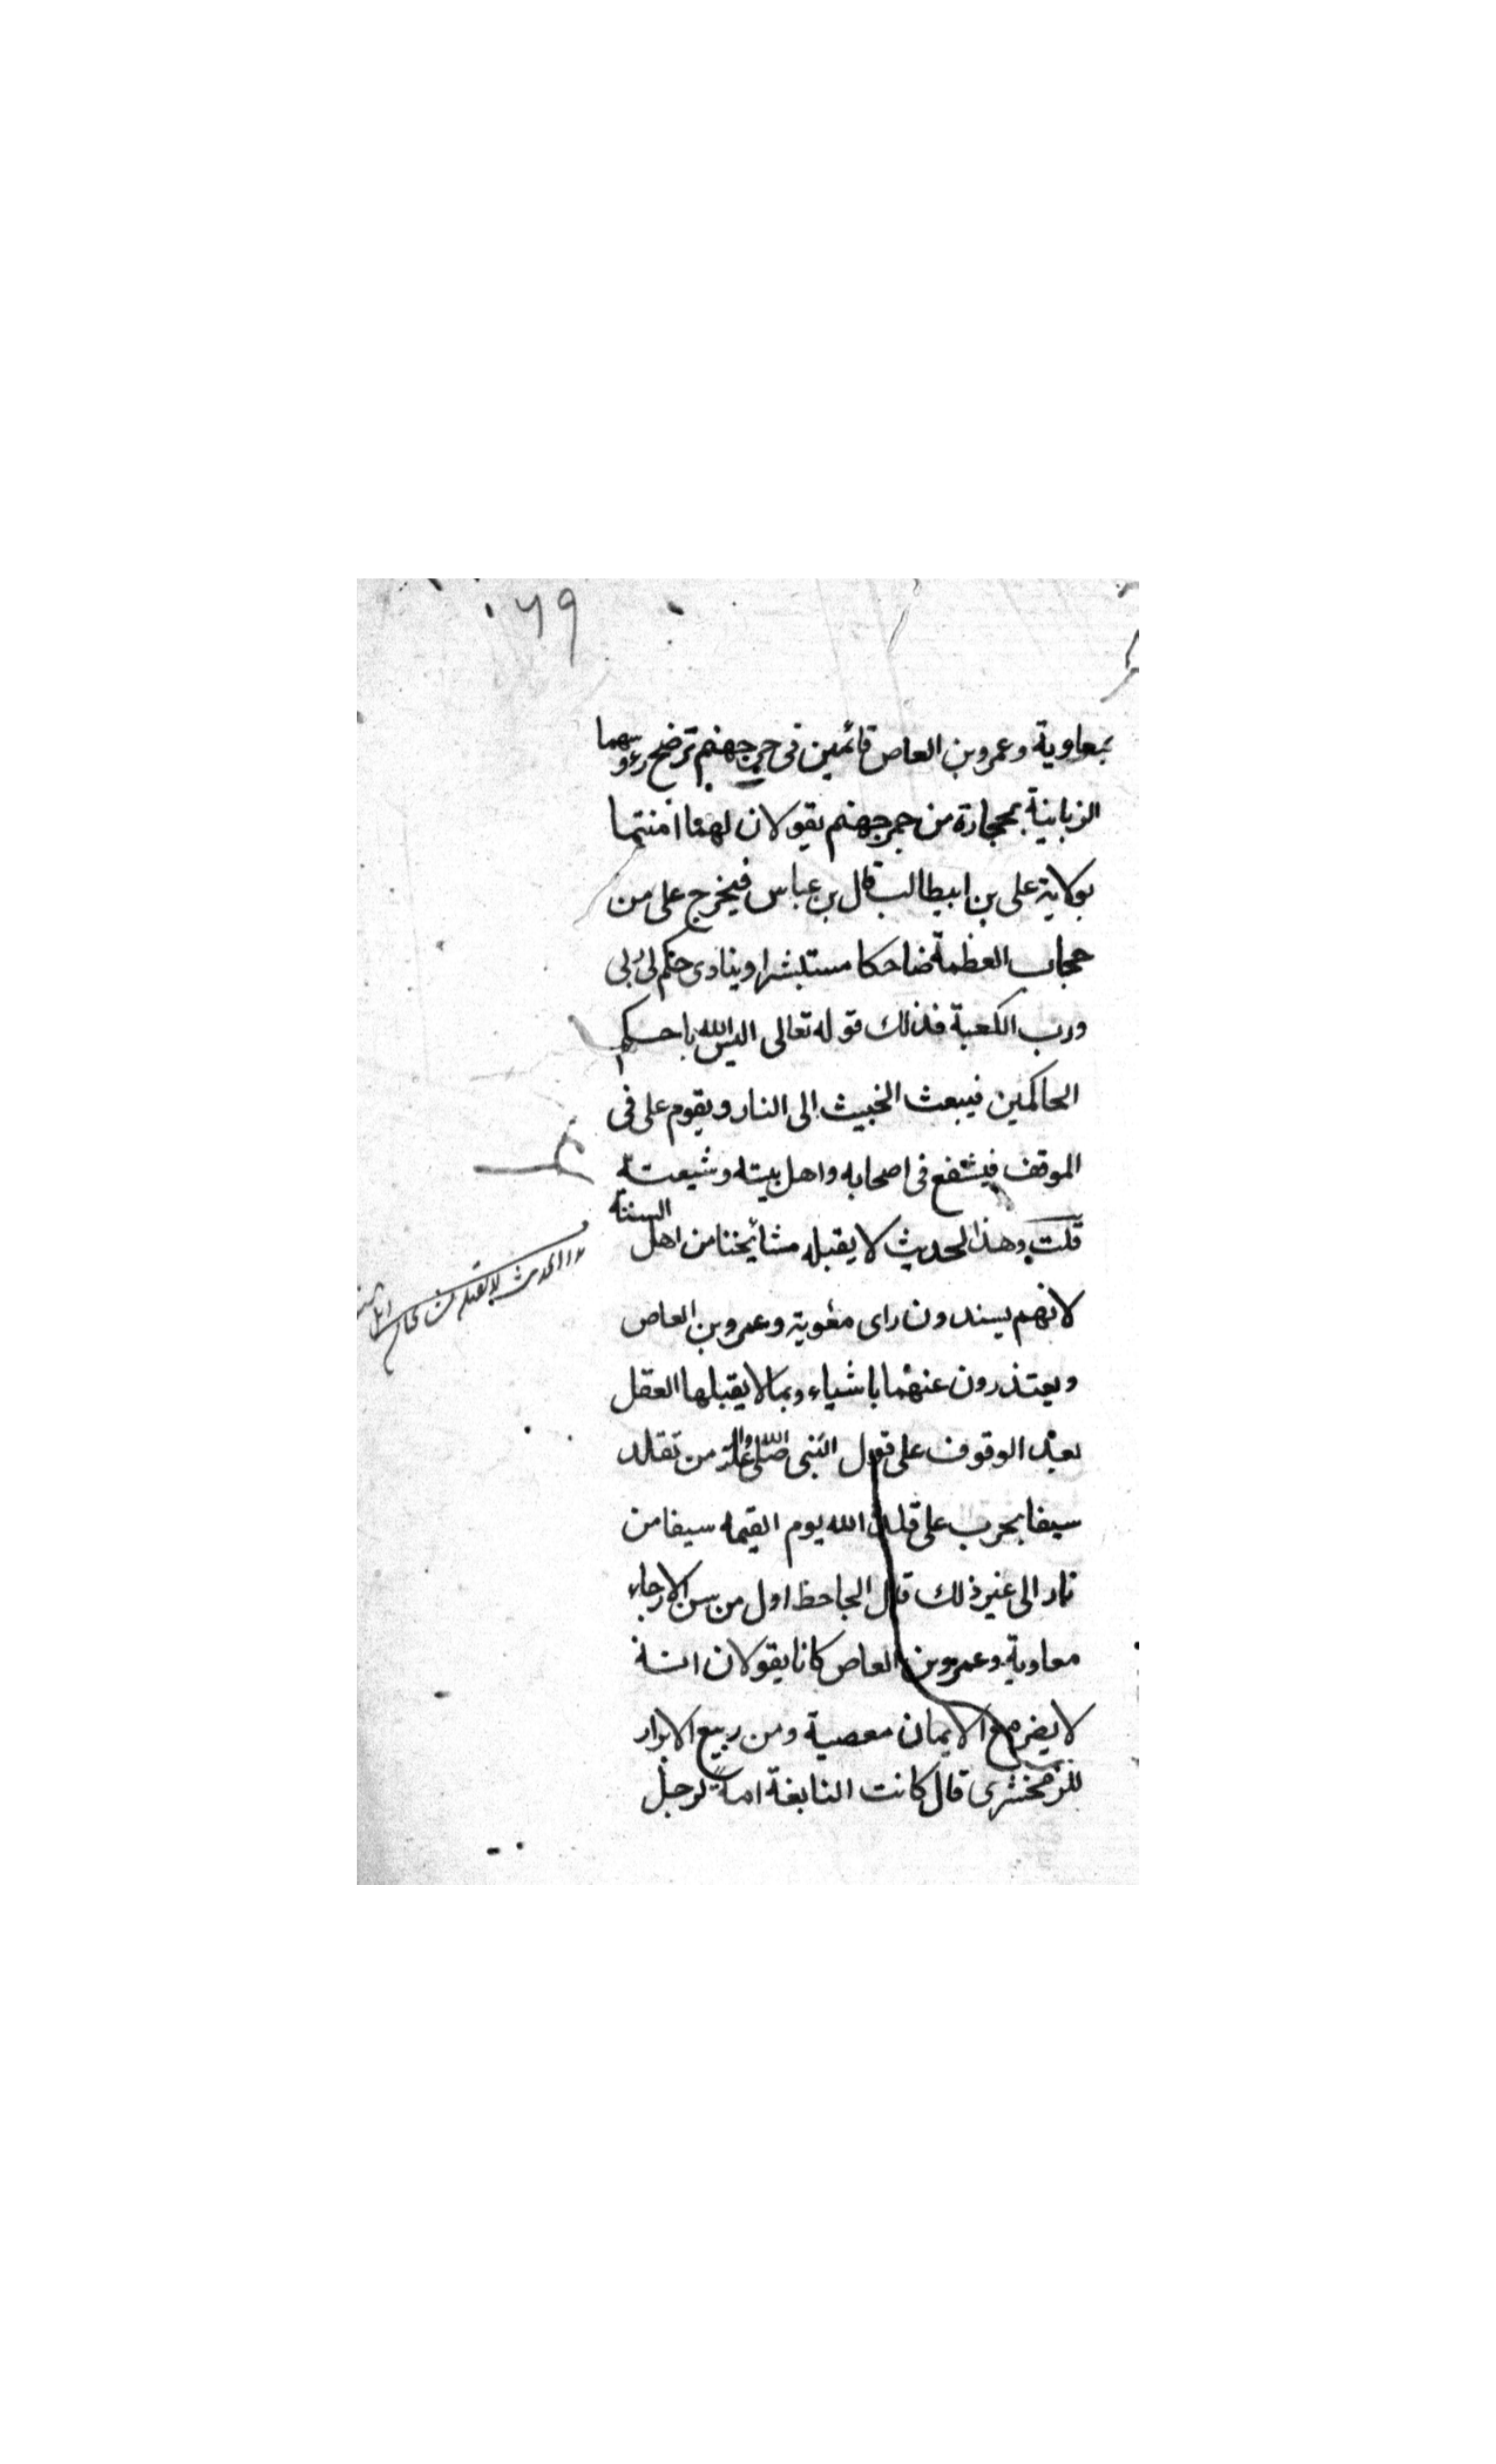 ٠٦٩
بمعاوية وعمروبن العاص قائمين فى جهنم ترضخ رءوسهما
الزبانية بحجارة من جمرجهنم يقولان لهما امنتما
بولاية على بن ابيطالب قال بن عباس فيخرج على من
حجاب العظمة ضاحكا مستبشرا وينادى حكم لى ربى
ورب الكعبة فذلك قوله تعالى اليس الله باحكم
الحاكمين فيبعث الخبيث الى النار ويقوم على فى
الموقف فيشفع فى اصحابه واهل بيته وشيعته
قلت وهذا الحديث لا يقبله مشائخنا من اهل السنة
لانهم يسندون راى معوية وعمروبن العاص
ويعتذرون عنهما باشياء وبمالايقبلها العقل
بعد الوقوف على قول النبى صلى الله عليه واله من تقلد
سيفا بحرب على قلده الله يوم القيمه سيفا من
نار الى غير ذلك قال الجاحظ اول من سن الارجاء
معاوية وعمروبن العاص كانا يقولان انه
لا يضر مع الايمان معصية ومن ربيع الابرار
للزمخشرى قال كانت النابغة امة لرجل
الحديث لا يقبله من